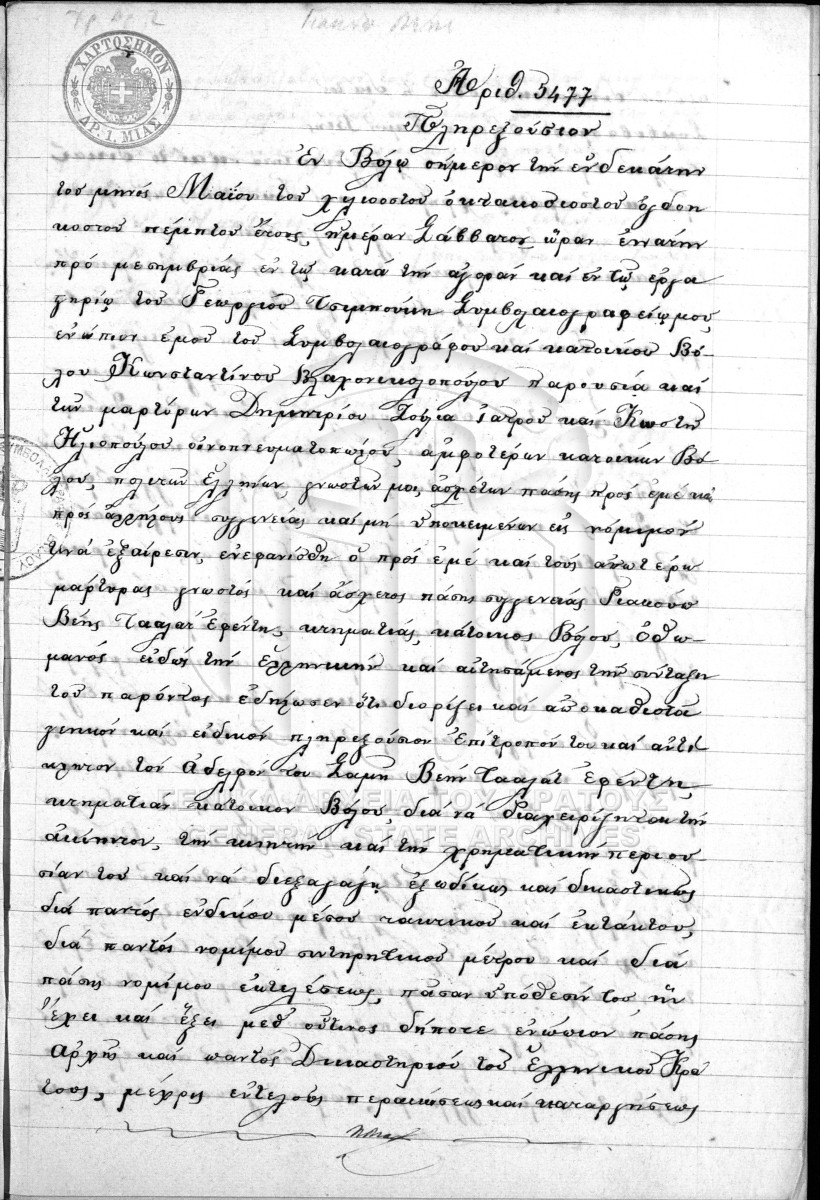 ΧΑΡΤΟΣΗΜΟΝ
ΔΡ. 1, ΜΙΑΣ
Ἀριθ. 5477
Πληρεξούσιον
Ἐν Βόλῳ σήμερον τὴν ἑνδεκάτην
τοῦ μηνὸς Μαΐου τοῦ χιλιοστοῦ ὀκτακοσιοστοῦ ὀγδοη
κοστοῦ πέμπτου ἔτους, ἡμέραν Σάββατον, ὥραν ἐνάτην
πρὸ μεσημβρίας ἐν τῷ κατὰ τὴν ἀγορὰν καὶ ἐν τῷ ἐργα
στηρίῳ τοῦ Γεωργίου Τσιμπούκη Συμβολαιογραφείῳ μου,
ἐνώπιον ἐμοῦ τοῦ Συμβολαιογράφου καὶ κατοίκου Βό-
λου Κωνσταντίνου Βλαχονικολοπούλου παρουσίᾳ καὶ
τῶν μαρτύρων Δημητρίου Ζούλια ἰατροῦ καὶ Κωστῆ
Ἠλιοπούλου οἰνοπνευματοπώλου, ἀμφοτέρων κατοίκων Βό-
λου, πολιτῶν Ἑλλήνων, γνωστῶν μοι, ἀσχέτων πάσης πρὸς ἐμὲ καὶ
πρὸς ἀλλήλους συγγενείας καὶ μὴ ὑποκειμένων εἰς νόμιμον
τινὰ ἐξαίρεσιν, ἐνεφανίσθη ὁ πρὸς ἐμὲ καὶ τοὺς ἀνωτέρω
μάρτυρας γνωστὸς καὶ ἄσχετος πάσης συγγενείας Γιακοὺπ
Βέης Τααλὰτ Ἐφέντης, κτηματίας, κάτοικος Βόλου, Ὀθω-
μανὸς εἰδὼς τὴν Ἑλληνικὴν καὶ αἰτησάμενος τὴν σύνταξιν
τοῦ παρόντος ἐδήλωσεν ὅτι διορίζει καὶ ἀποκαθιστᾷ
γενικὸν καὶ εἰδικὸν πληρεξούσιον ἐπίτροπόν του καὶ ἀντί
κλητον τὸν ἀδελφόν του Σαμὴ Βέην Τααλὰτ Ἐφέντην,
κτηματίαν κάτοικον Βόλου, διὰ νὰ διαχειρίζηται τὴν
ἀκίνητον, τὴν κινητὴν καὶ τὴν χρηματικὴν περιου
σίαν του καὶ νὰ διεξαγάγῃ ἐξωδίκως καὶ δικαστικῶς
διὰ παντὸς ἐνδίκου μέσου τακτικοῦ καὶ ἐκτάκτου,
διὰ παντὸς νομίμου συντηρητικοῦ μέτρου καὶ διὰ
πάσης νομίμου ἐκτελέσεως, πᾶσαν ὑπόθεσίν του, ἣν
ἔχει καὶ ἕξει μεθ' οὗτινος δήποτε ἐνώπιον πάσης
Ἀρχῆς καὶ παντὸς Δικαστηρίου τοῦ Ἑλληνικοῦ Κρά
τους, μέχρις ἐντελοῦς περαιώσεως καὶ καταργήσεως
ΓΕΝΙΚΑ ΑΡΧΕΙΑ ΤΟΥ ΚΡΑΤΟΥΣ
GENERAL STATE ARCHIVES